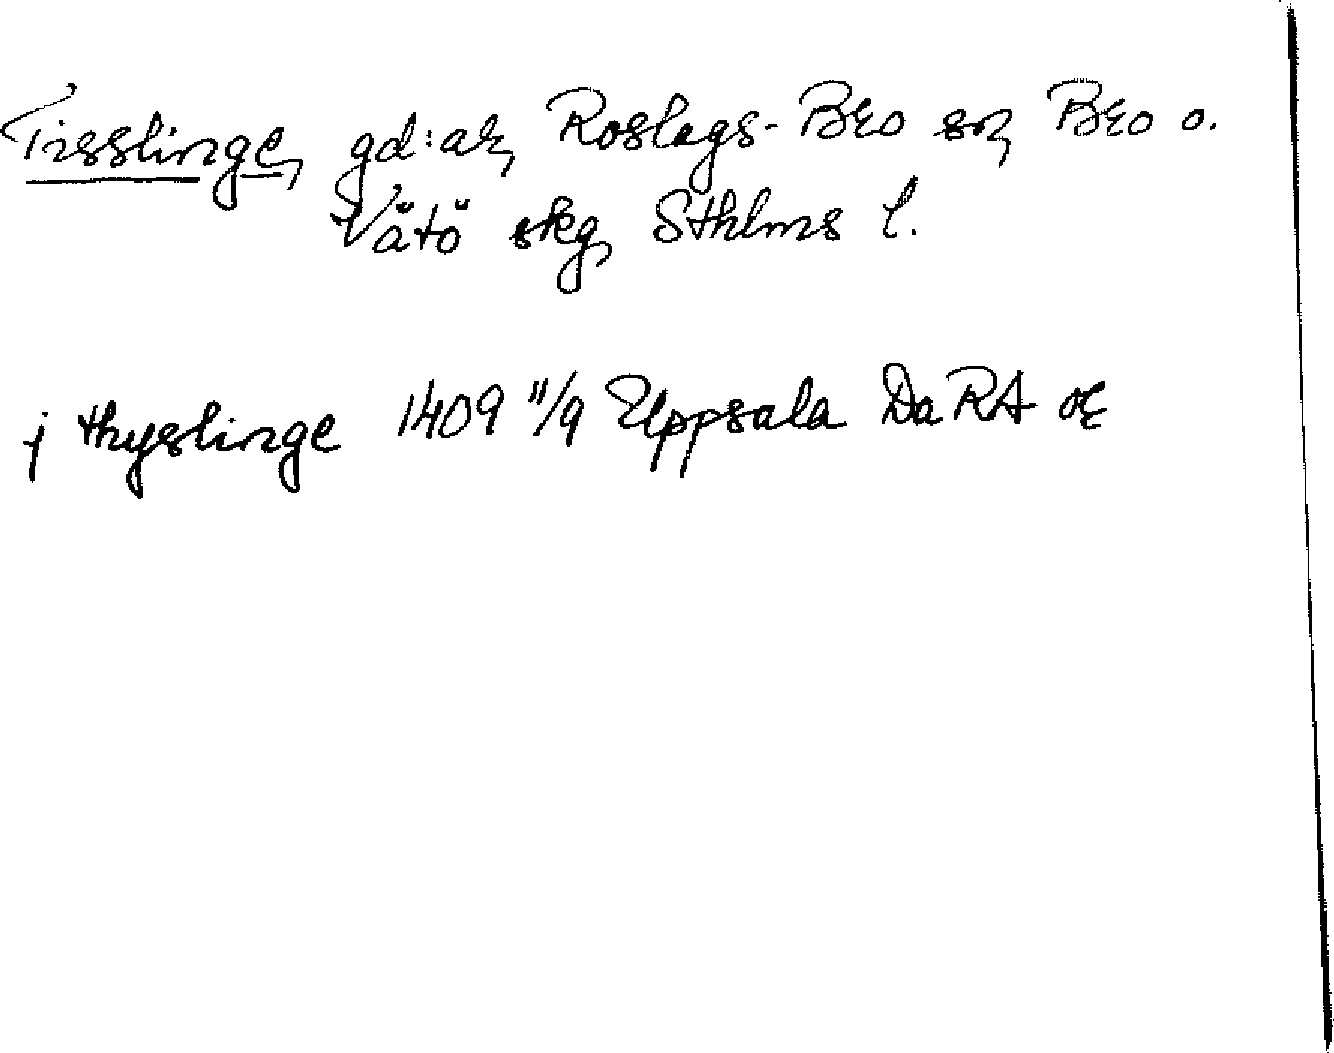 Tisslinge, gd:ar, Roslags-Bro sn, Bro o.
Vätö skg, Sthlms l.
j thyslinge 1409 11/9 Uppsala Da RA or